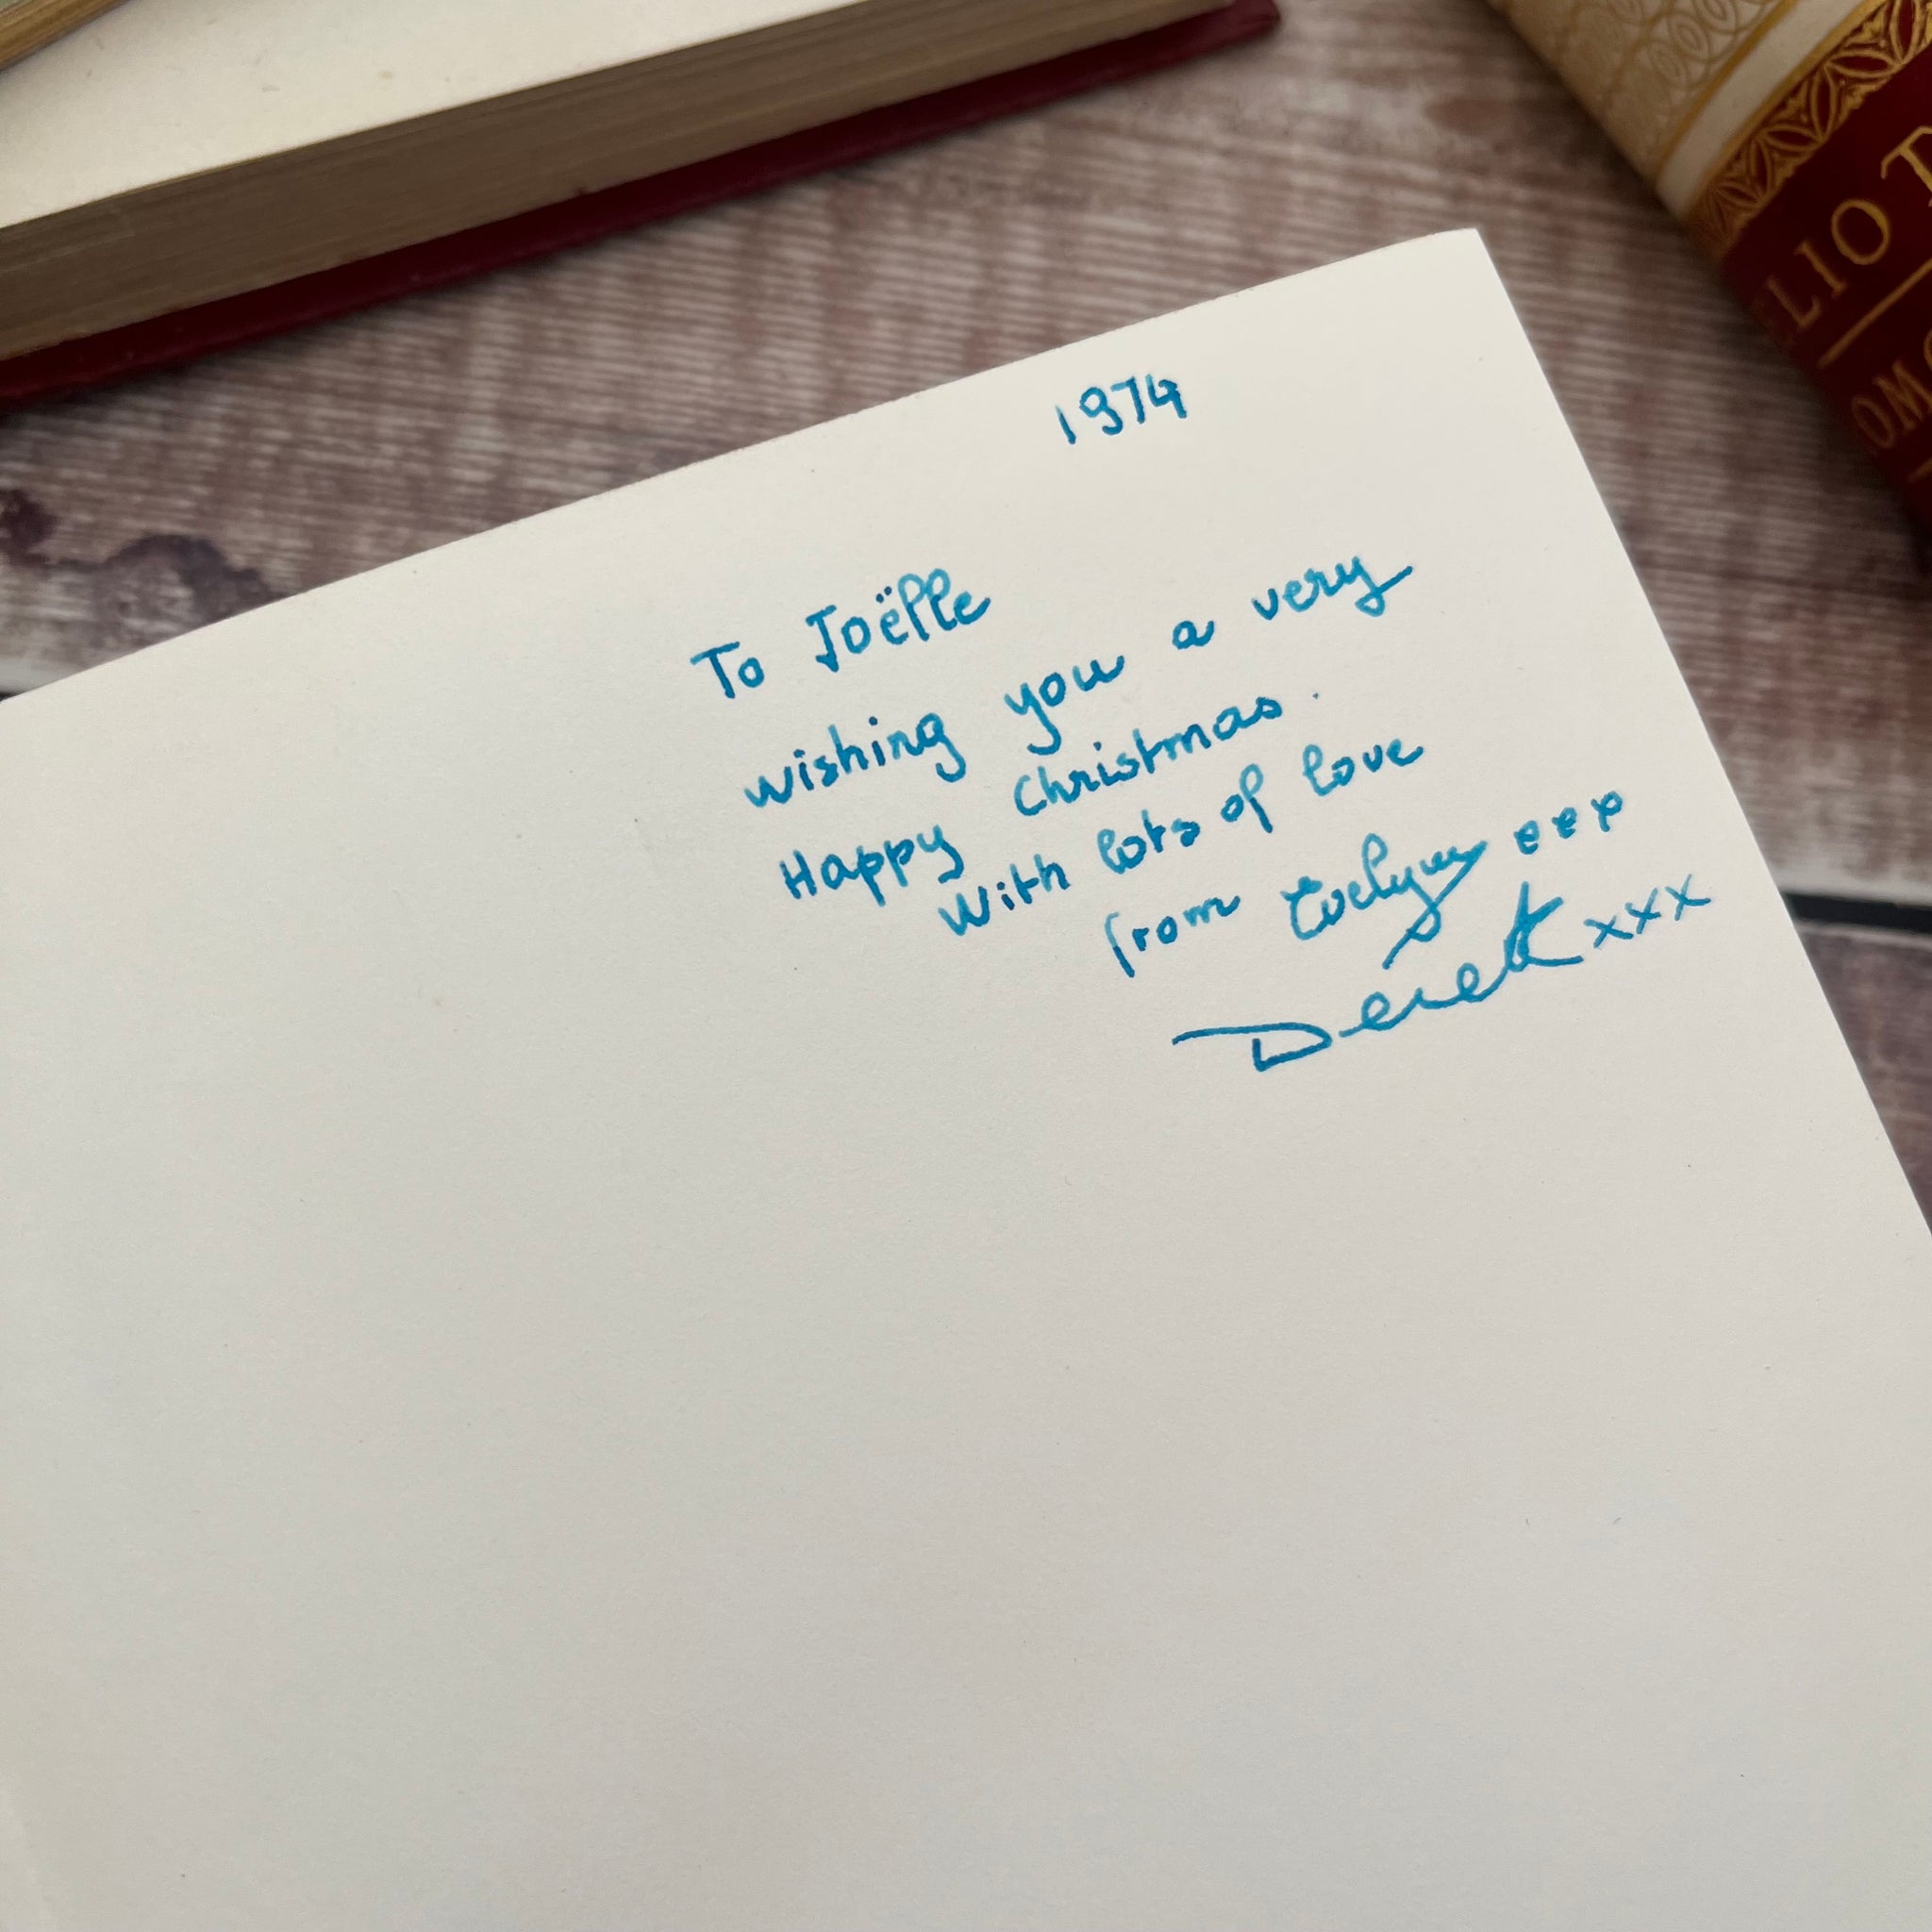 1974
To Joëlle
wishing you a very
Happy Christmas.
With lots of love
from Evelyn xxx
Derek xxx
LIO
OM